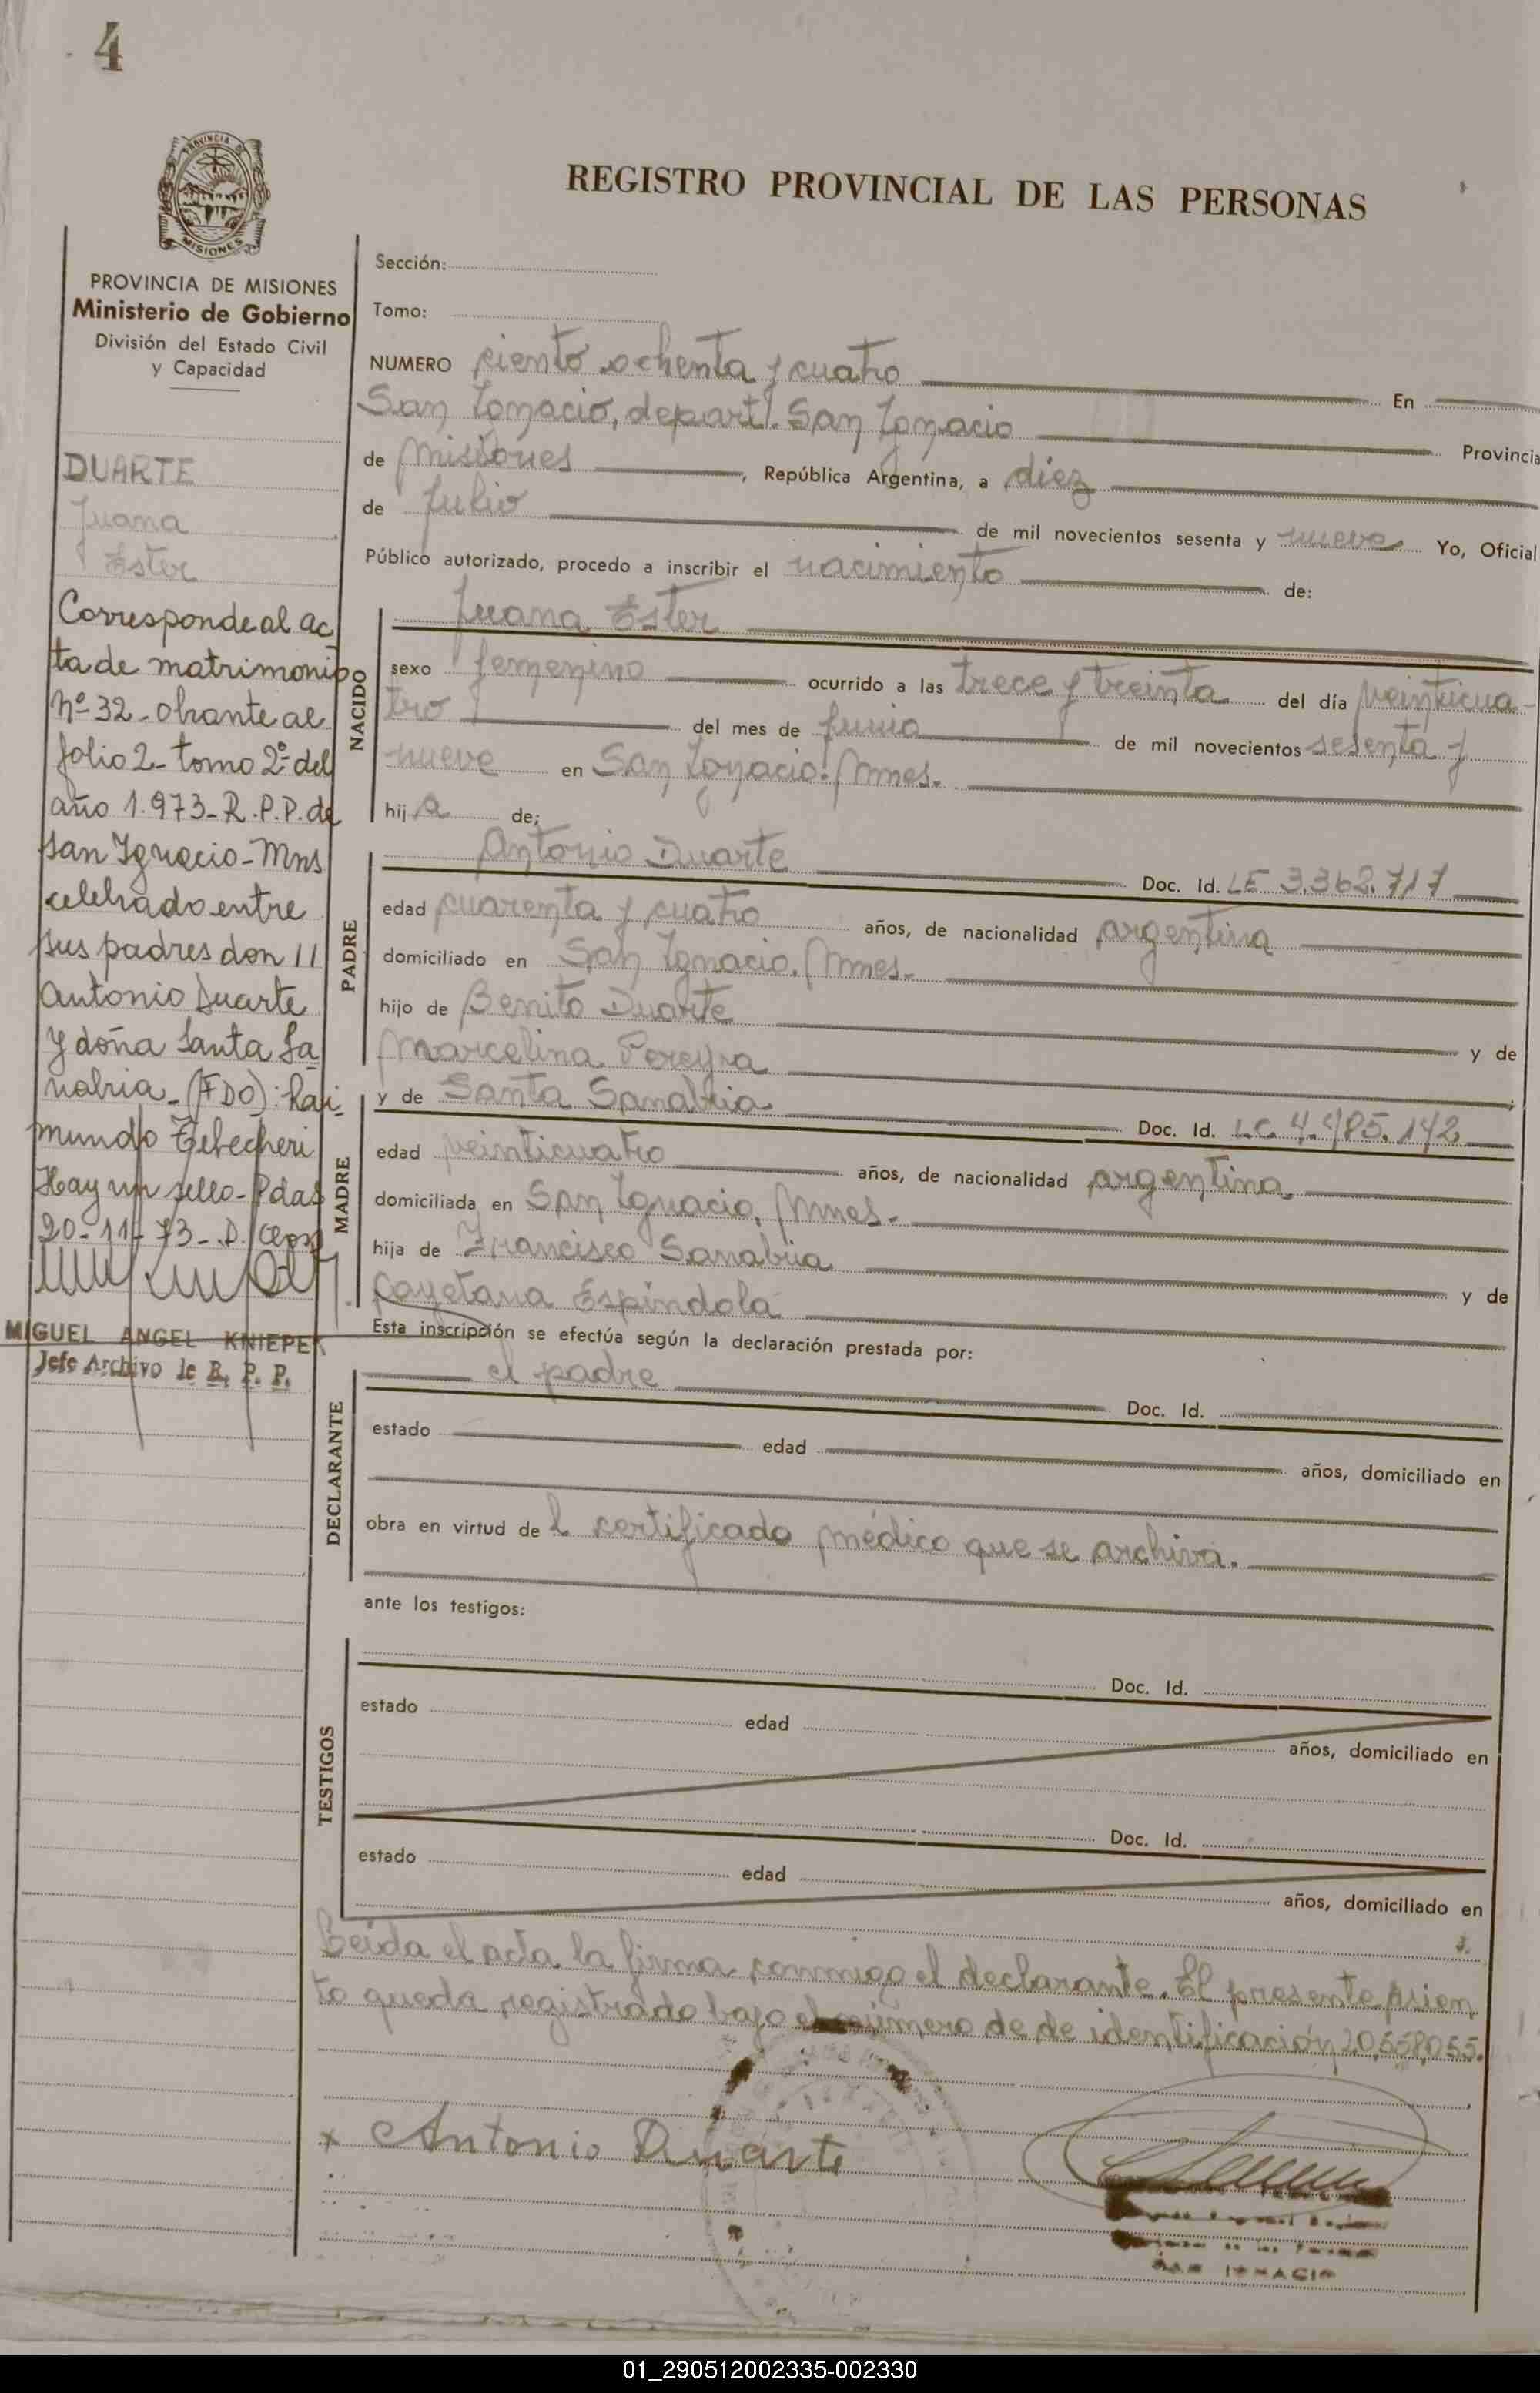 4
PROVINCIA DE
MISIONES
REGISTRO PROVINCIAL DE LAS PERSONAS
PROVINCIA DE MISIONES
Ministerio de Gobierno
División del Estado Civil
y Capacidad
DUARTE
Juana
Ester
Corresponde al ac
ta de matrimonio
Nº 32 - obrante al
folio 2 - tomo 2º del
año 1.973 - R.P.P. de
San Ignacio - Mns
celebrado entre
sus padres don //
Antonio Duarte
y doña Santa Sa
nabria - (FDO): Rai-
mundo
Hay un sello - Pdas
20-11-73 -
MIGUEL ANGEL KNIEPER
Jefe Archivo de R. P. P.
Sección:
Tomo:
NUMERO ciento ochenta y cuatro En
San Ignacio, depart. San Ignacio Provincia
de Misiones, República Argentina, a diez
de Julio de mil novecientos sesenta y nueve Yo, Oficial
Público autorizado, procedo a inscribir el nacimiento de:
NACIDO
Juana Ester
sexo femenino ocurrido a las trece y treinta del día veinticua-
tro del mes de junio de mil novecientos sesenta y
nueve en San Ignacio. Mnes.
hija de:
PADRE
Antonio Duarte Doc. Id. LE 3.362.717
edad cuarenta y cuatro años, de nacionalidad argentina
domiciliado en San Ignacio. Mnes.
hijo de Benito Duarte y de
Marcelina Pereyra ;
MADRE
y de Santa Sanabria Doc. Id. LC. 4.485.142
edad veinticuatro años, de nacionalidad argentina.
domiciliada en San Ignacio, Mnes.
hija de Francisco Sanabria y de
Cayetana Espíndola
Esta inscripción se efectúa según la declaración prestada por:
DECLARANTE
el padre Doc. Id.
estado edad años, domiciliado en
obra en virtud del certificado médico que se archiva.
ante los testigos:
TESTIGOS
Doc. Id.
estado edad
años, domiciliado en
Doc. Id.
estado edad
años, domiciliado en
Leida el acta la firma conmigo el declarante. El presente asien
to queda registrado bajo el número de de identificación 20.558.055.
x Antonio Duarte
SAN IGNACIO
01_290512002335-002330